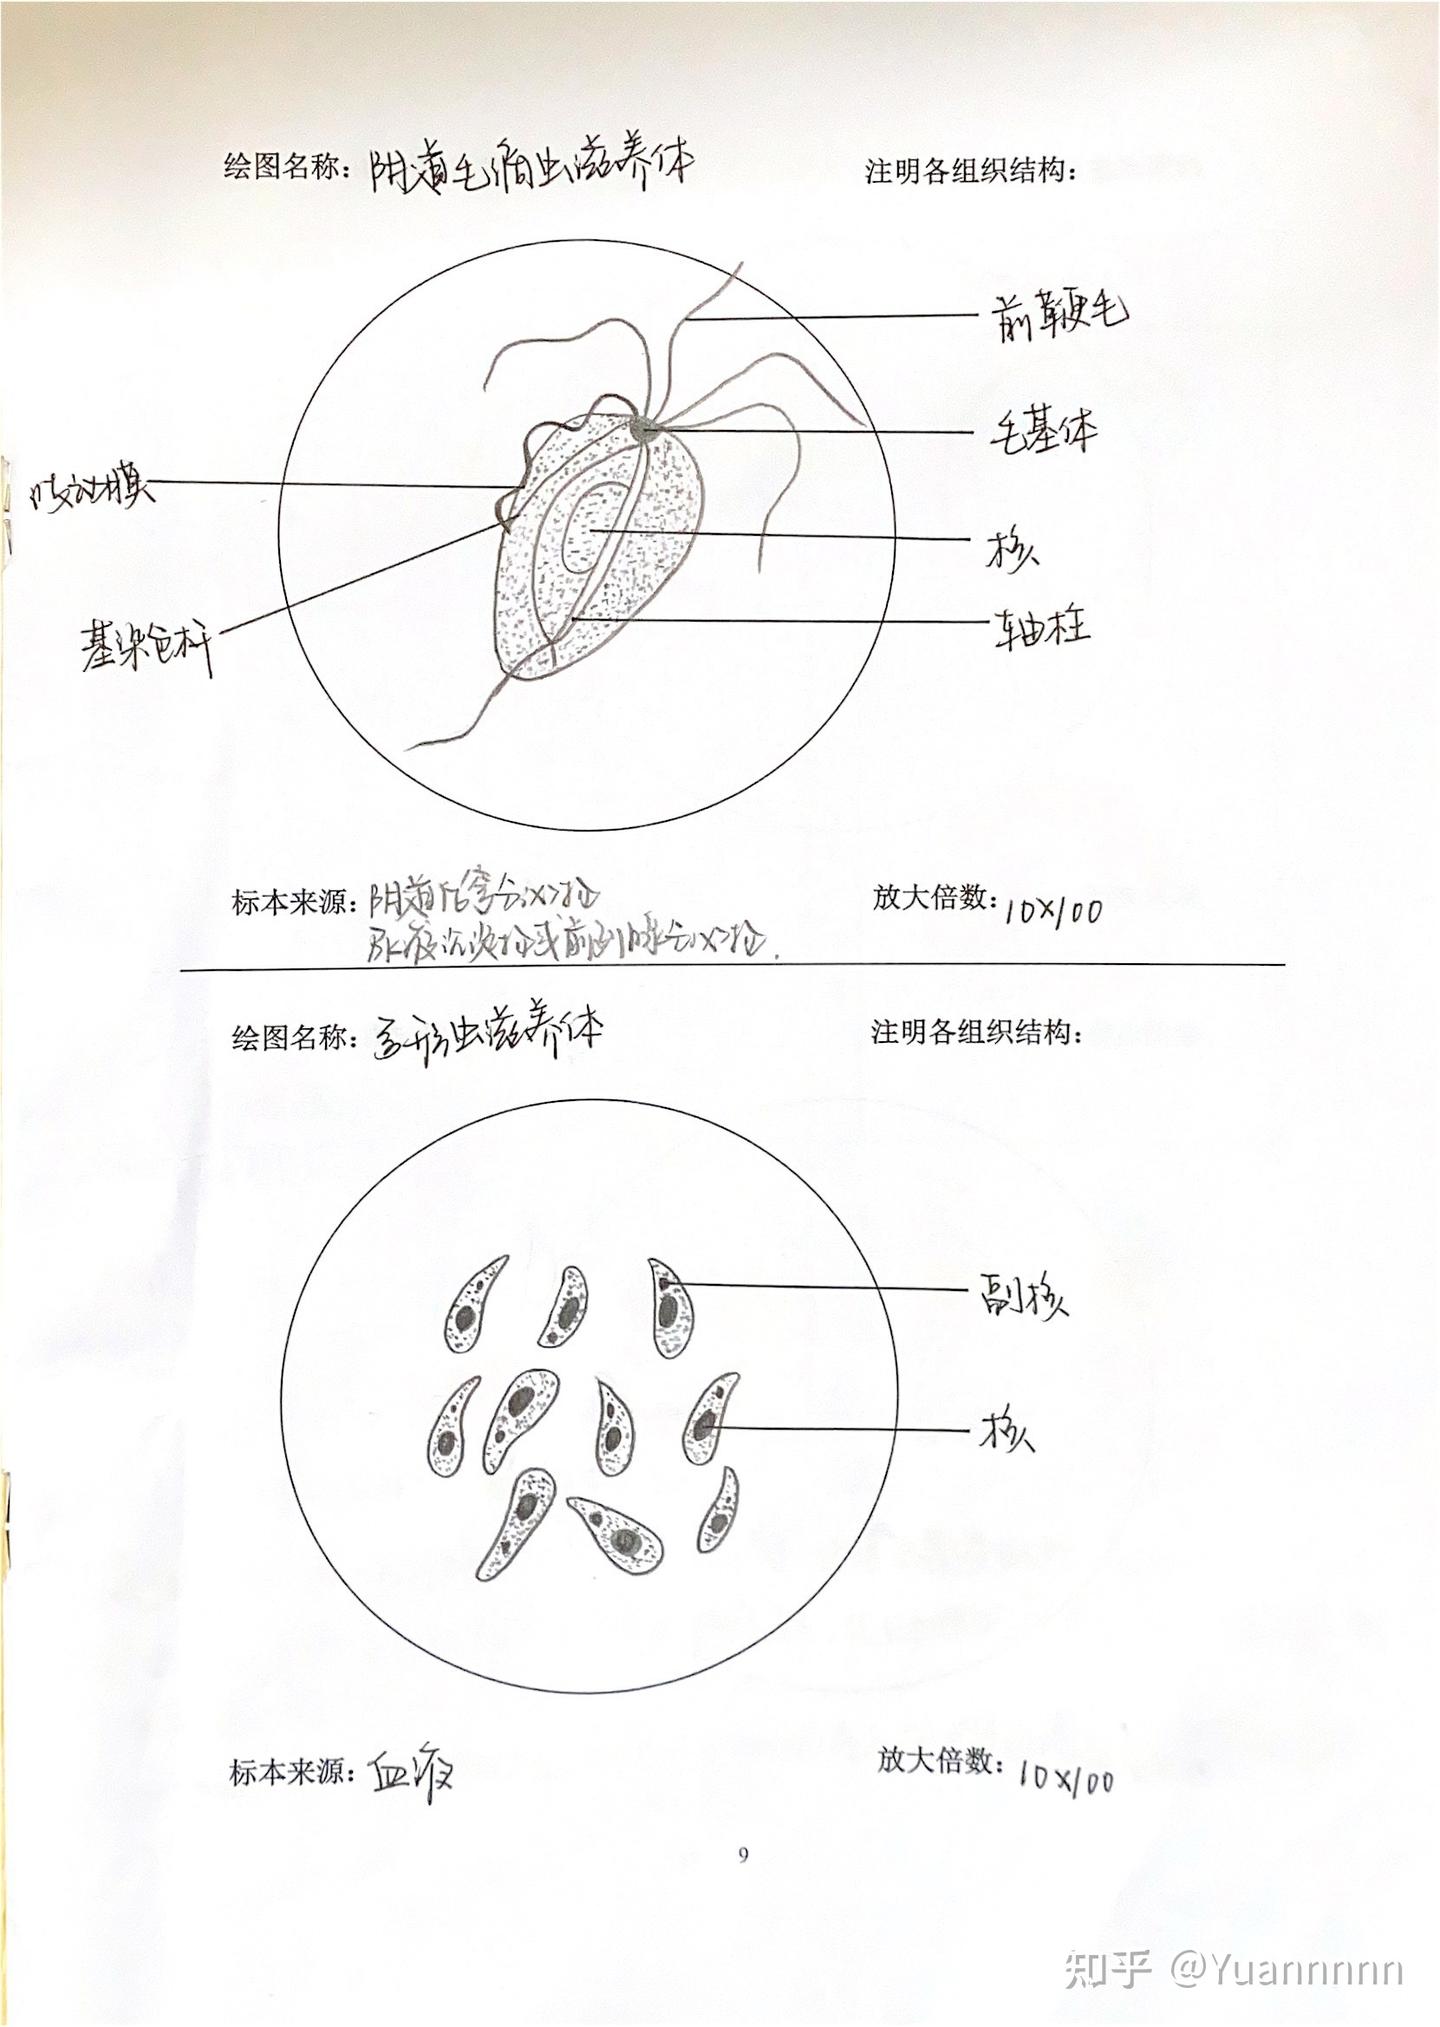 绘图名称：阴道毛滴虫滋养体
注明各组织结构：
前鞭毛
毛基体
波动膜
核
轴柱
基染色杆
标本来源：阴道后穹分泌物
放大倍数：10×100
尿液沉淀物或前列腺分泌物.
绘图名称：弓形虫滋养体
注明各组织结构：
副核
核
标本来源：血液
放大倍数：10×100
9
知乎 @Yuannnnn